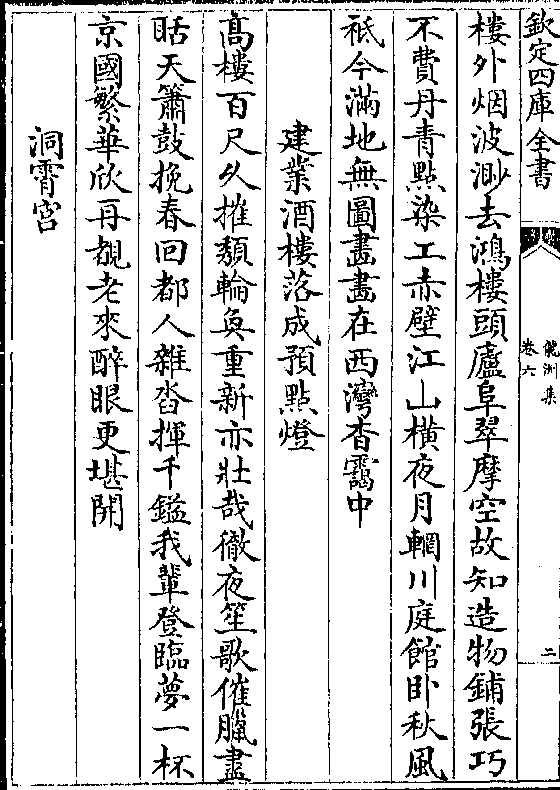 欽定四庫全書
龍洲集
卷六
二
樓外烟波渺去鴻樓頭廬阜翠摩空故知造物鋪張巧
不費丹青點染工赤壁江山橫夜月輞川庭館卧秋風
祗今滿地無圖畫畫在西灣杳靄中
建業酒樓落成預點燈
髙樓百尺久摧頽輪奐重新亦壯哉徹夜笙歌催臘盡
聒天簫鼓挽春回都人雜沓揮千鎰我輩登臨夢一杯
京國繁華欣再覩老來醉眼更堪開
洞霄宫